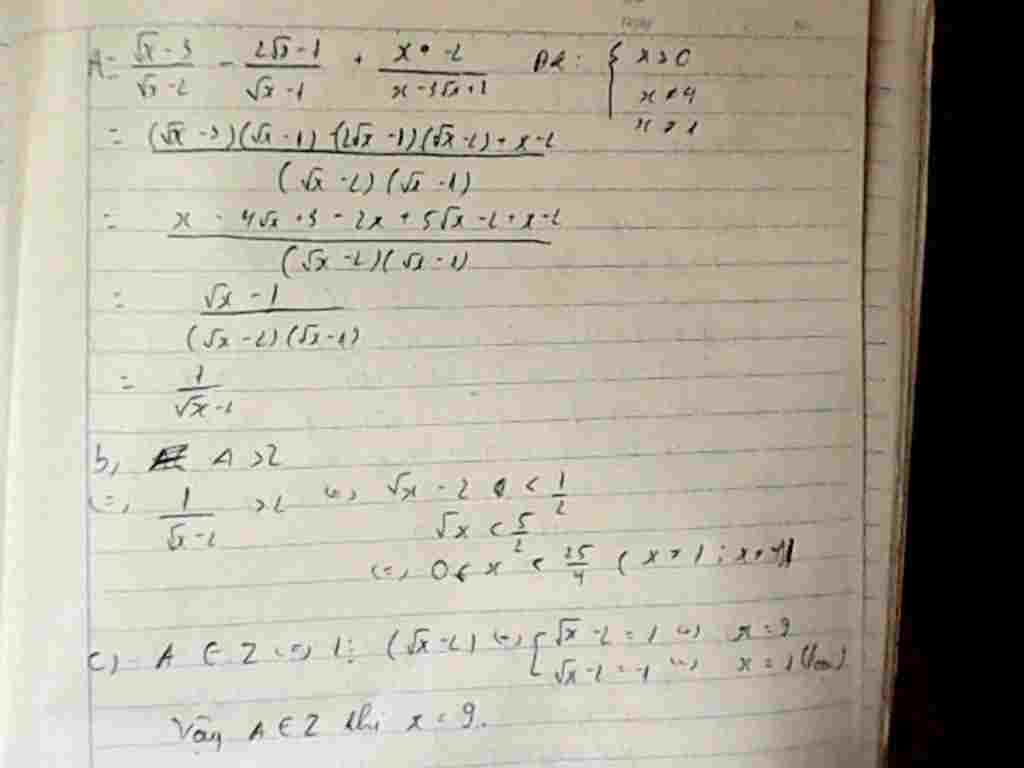 A = \frac{\sqrt{x} - 3}{\sqrt{x} - 2} - \frac{2\sqrt{x} - 1}{\sqrt{x} - 1} + \frac{x - 2}{x - 3\sqrt{x} + 2} ĐK: { x ≥ 0
x ≠ 4
x ≠ 1
= \frac{(\sqrt{x} - 3)(\sqrt{x} - 1) - (2\sqrt{x} - 1)(\sqrt{x} - 2) + x - 2}{(\sqrt{x} - 2)(\sqrt{x} - 1)}
= \frac{x - 4\sqrt{x} + 3 - 2x + 5\sqrt{x} - 2 + x - 2}{(\sqrt{x} - 2)(\sqrt{x} - 1)}
= \frac{\sqrt{x} - 1}{(\sqrt{x} - 2)(\sqrt{x} - 1)}
= \frac{1}{\sqrt{x} - 2}
b, A > 2
(=) \frac{1}{\sqrt{x} - 2} > 2 (=) \sqrt{x} - 2 < \frac{1}{2}
\sqrt{x} < \frac{5}{2}
(=) 0 ≤ x < \frac{25}{4} (x ≠ 1; x ≠ 4)
c) A ∈ Z (=) 1 ⋮ (\sqrt{x} - 2) (=) [ \sqrt{x} - 2 = 1 (=) x = 9
\sqrt{x} - 2 = -1 (=) x = 1 (loại)
Vậy A ∈ Z khi x = 9.